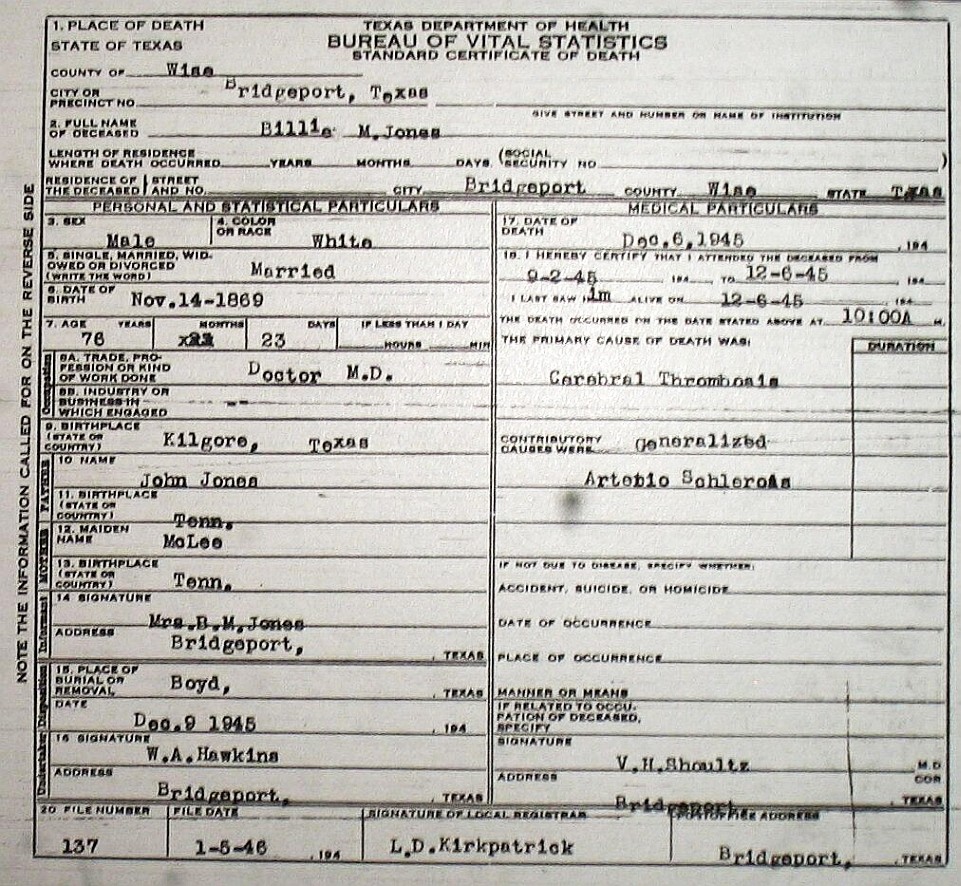 TEXAS DEPARTMENT OF HEALTH
BUREAU OF VITAL STATISTICS
STANDARD CERTIFICATE OF DEATH
1. PLACE OF DEATH
STATE OF TEXAS
COUNTY OF Wise
CITY OR
PRECINCT NO. Bridgeport, Texas
GIVE STREET AND NUMBER OR NAME OF INSTITUTION
2. FULL NAME
OF DECEASED Billie M.Jones
LENGTH OF RESIDENCE
WHERE DEATH OCCURRED YEARS MONTHS DAYS (SOCIAL SECURITY NO. )
RESIDENCE OF THE DECEASED STREET AND NO. CITY Bridgeport COUNTY Wise STATE Texas
PERSONAL AND STATISTICAL PARTICULARS
3. SEX
Male
4. COLOR
OR RACE White
5. SINGLE, MARRIED, WID-
OWED OR DIVORCED
(WRITE THE WORD) Married
6. DATE OF
BIRTH Nov.14-1869
7. AGE YEARS MONTHS DAYS IF LESS THAN 1 DAY
76 23 HOURS MIN
Occupation
8A. TRADE, PRO-
FESSION OR KIND
OF WORK DONE Doctor M.D.
8B. INDUSTRY OR
BUSINESS IN
WHICH ENGAGED
9. BIRTHPLACE
(STATE OR
COUNTRY) Kilgore, Texas
FATHER
10 NAME
John Jones
11. BIRTHPLACE
(STATE OR
COUNTRY) Tenn.
MOTHER
12. MAIDEN
NAME McLee
13. BIRTHPLACE
(STATE OR
COUNTRY) Tenn.
Informant
14 SIGNATURE
Mrs.B.M.Jones
ADDRESS Bridgeport, , TEXAS
Disposition
15. PLACE OF
BURIAL OR
REMOVAL Boyd, , TEXAS
DATE
Dec.9 1945 , 194
Undertaker
16 SIGNATURE
W.A.Hawkins
ADDRESS
Bridgeport, , TEXAS
MEDICAL PARTICULARS
17. DATE OF
DEATH Dec.6,1945 , 194
18. I HEREBY CERTIFY THAT I ATTENDED THE DECEASED FROM
9-2-45 , 194 , TO 12-6-45 , 194
I LAST SAW him ALIVE ON 12-6-45 194
THE DEATH OCCURRED ON THE DATE STATED ABOVE AT 10:00A M.
THE PRIMARY CAUSE OF DEATH WAS: DURATION
Cerebral Thrombosis
CONTRIBUTORY
CAUSES WERE Generalized
Artebio Schlerois
IF NOT DUE TO DISEASE, SPECIFY WHETHER:
ACCIDENT, SUICIDE, OR HOMICIDE
DATE OF OCCURRENCE
PLACE OF OCCURRENCE
MANNER OR MEANS
IF RELATED TO OCCU-
PATION OF DECEASED,
SPECIFY
SIGNATURE
V.H.Shoultz M.D
COR
ADDRESS
Bridgeport, , TEXAS
20 FILE NUMBER
137
FILE DATE
1-5-46 , 194
SIGNATURE OF LOCAL REGISTRAR
L.D.Kirkpatrick
POSTOFFICE ADDRESS
Bridgeport, , TEXAS
NOTE THE INFORMATION CALLED FOR ON THE REVERSE SIDE